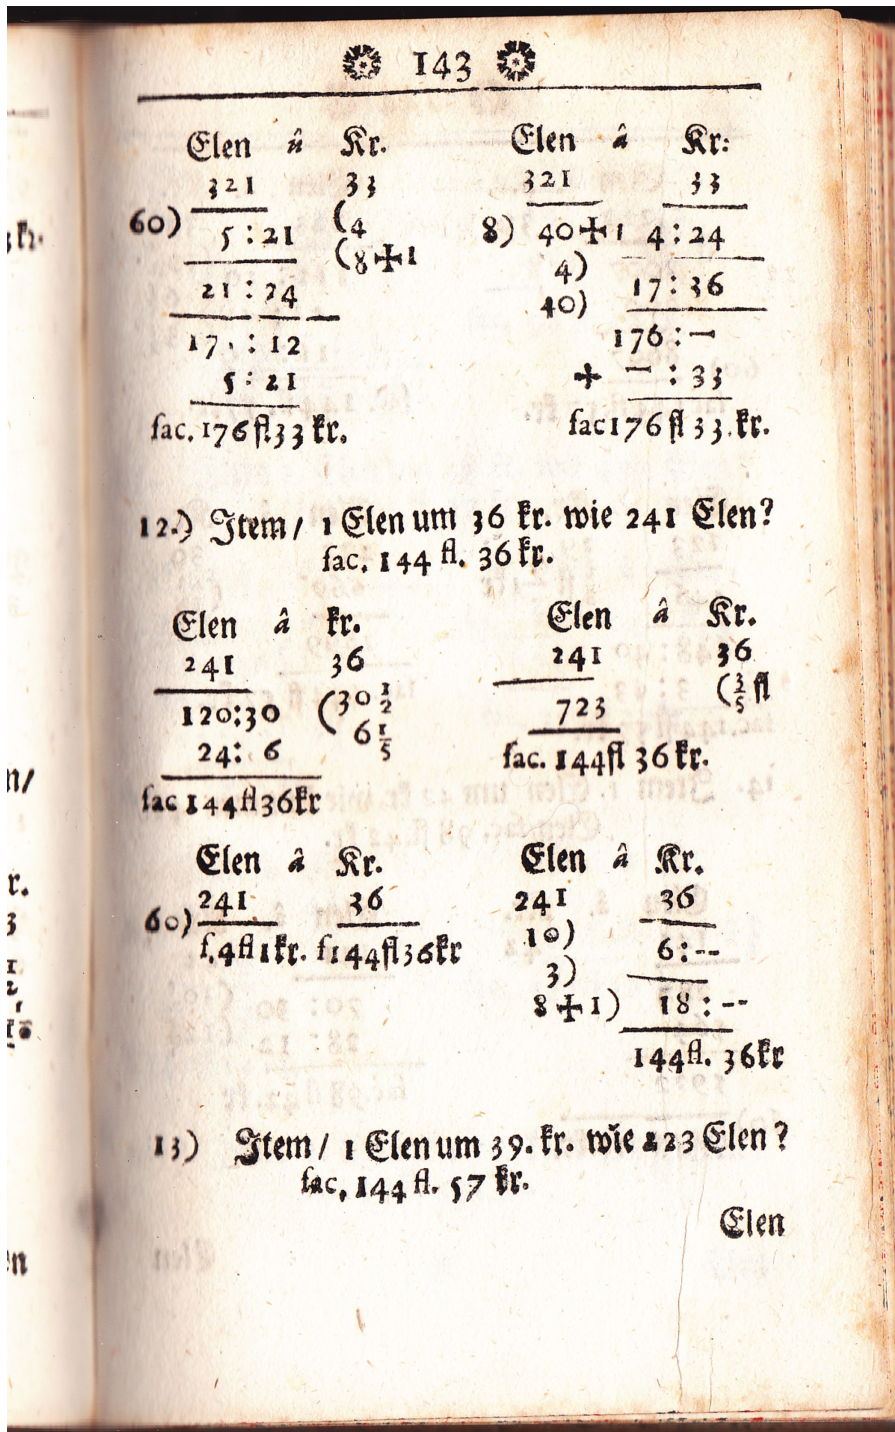 143
Elen â Kr.
321 33
60) 5:21 (4
(8+1
21:24
17 . : 12
5:21
fac. 176 fl. 33 kr.
Elen â Kr:
321 33
8) 40+1 4:24
4) 17:36
40)
176:—
+ — : 33
fac 176 fl 33. kr.
12.) Item / 1 Elen um 36 kr. wie 241 Elen?
fac. 144 fl. 36 kr.
Elen â kr.
241 36
120:30 (30 1/2
24: 6 6 1/5
fac 144 fl 36 kr
Elen â Kr.
241 36
(3/5 fl
723
fac. 144 fl 36 kr.
Elen â Kr.
241 36
60) f. 4 fl 1 kr. f 144 fl 36 kr
Elen â Kr.
241 36
10) 6:--
3)
8+1) 18:--
144 fl. 36 kr
13) Item / 1 Elen um 39. kr. wie 223 Elen?
fac, 144 fl. 57 kr.
Elen